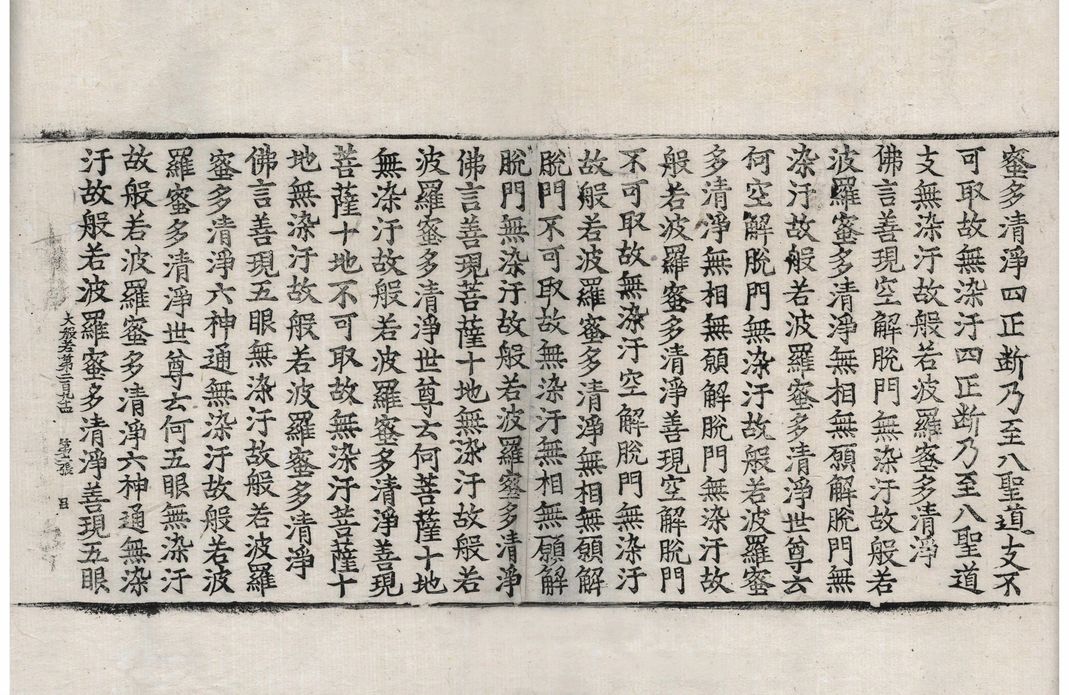 蜜多清淨四正断乃至八聖道支不
可取故無染汙四正断乃至八聖道
支無染汙故般若波羅蜜多清淨
佛言善現空解脫門無染汙故般若
波羅蜜多清淨無相無願解脫門無
染汙故般若波羅蜜多清淨世尊云
何空解脫門無染汙故般若波羅蜜
多清淨無相無願解脫門無染汙故
般若波羅蜜多清淨善現空解脫門
不可取故無染汙空解脫門無染汙
故般若波羅蜜多清淨無相無願解
脫門不可取故無染汙無相無願解
脫門無染汙故般若波羅蜜多清淨
佛言善現菩薩十地無染汙故般若
波羅蜜多清淨世尊云何菩薩十地
無染汙故般若波羅蜜多清淨善現
菩薩十地不可取故無染汙菩薩十
地無染汙故般若波羅蜜多清淨
佛言善現五眼無染汙故般若波羅
蜜多清淨六神通無染汙故般若波
羅蜜多清淨世尊云何五眼無染汙
故般若波羅蜜多清淨六神通無染
汙故般若波羅蜜多清淨善現五眼
大般若第二百九